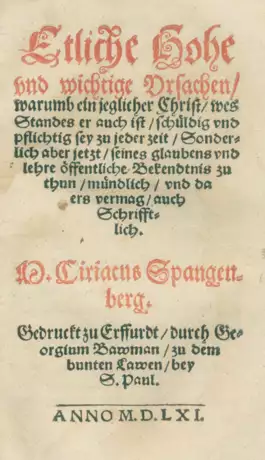 Etliche Hohe
vnd wichtige Vrsachen/
warumb ein jeglicher Christ/ wes
Standes er auch ist/ schüldig vnd
pflichtig sey zu jeder zeit/ Sonder-
lich aber jetzt/ seines glaubens vnd
lehre öffentliche Bekendtnis zu
thun/ mündlich/ vnd da
ers vermag/ auch
Schrifft-
lich.
M. Ciriacus Spangen-
berg.
Gedruckt zu Erffurdt/ durch Ge-
orgium Bawman/ zu dem
bunten Lawen/ bey
S. Paul.
ANNO M.D.LXI.